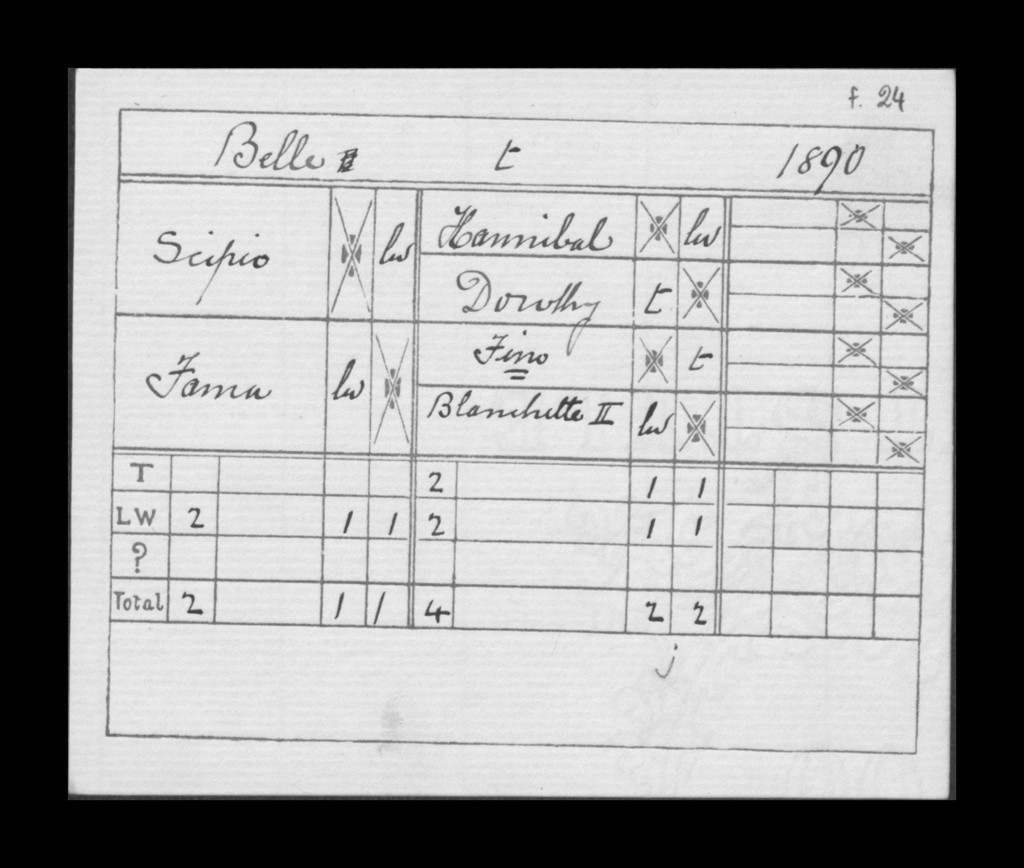 f. 24
Belle t 1890
Scipio lw
Hannibal lw
Dorothy t
Fama lw
Fino t
Blanchette II lw
T 2 1 1
LW 2 1 1 2 1 1
?
Total 2 1 1 4 2 2
j